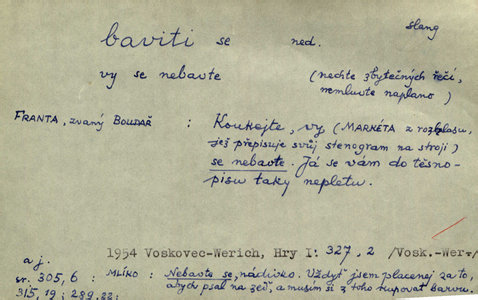 slang
baviti se ned.
vy se nebavte (nechte zbytečných řečí,
nemluvte naplano)
FRANTA, zvaný BOUDAŘ : Koukejte, vy (MARKÉTA z rozhlasu,
jež přepisuje svůj stenogram na stroji)
se nebavte. Já se vám do těsno-
pisu taky nepletu.
1954 Voskovec-Werich, Hry I: 327, 2 /Vosk.-Wer+/
a j.
sr. 305,6 : MLÍKO : Nebavte se, nádivko. Vždyť jsem placenej za to,
abych psal na zeď, a musím si z toho kupovat barvu.
315, 19 ; 289, 22;